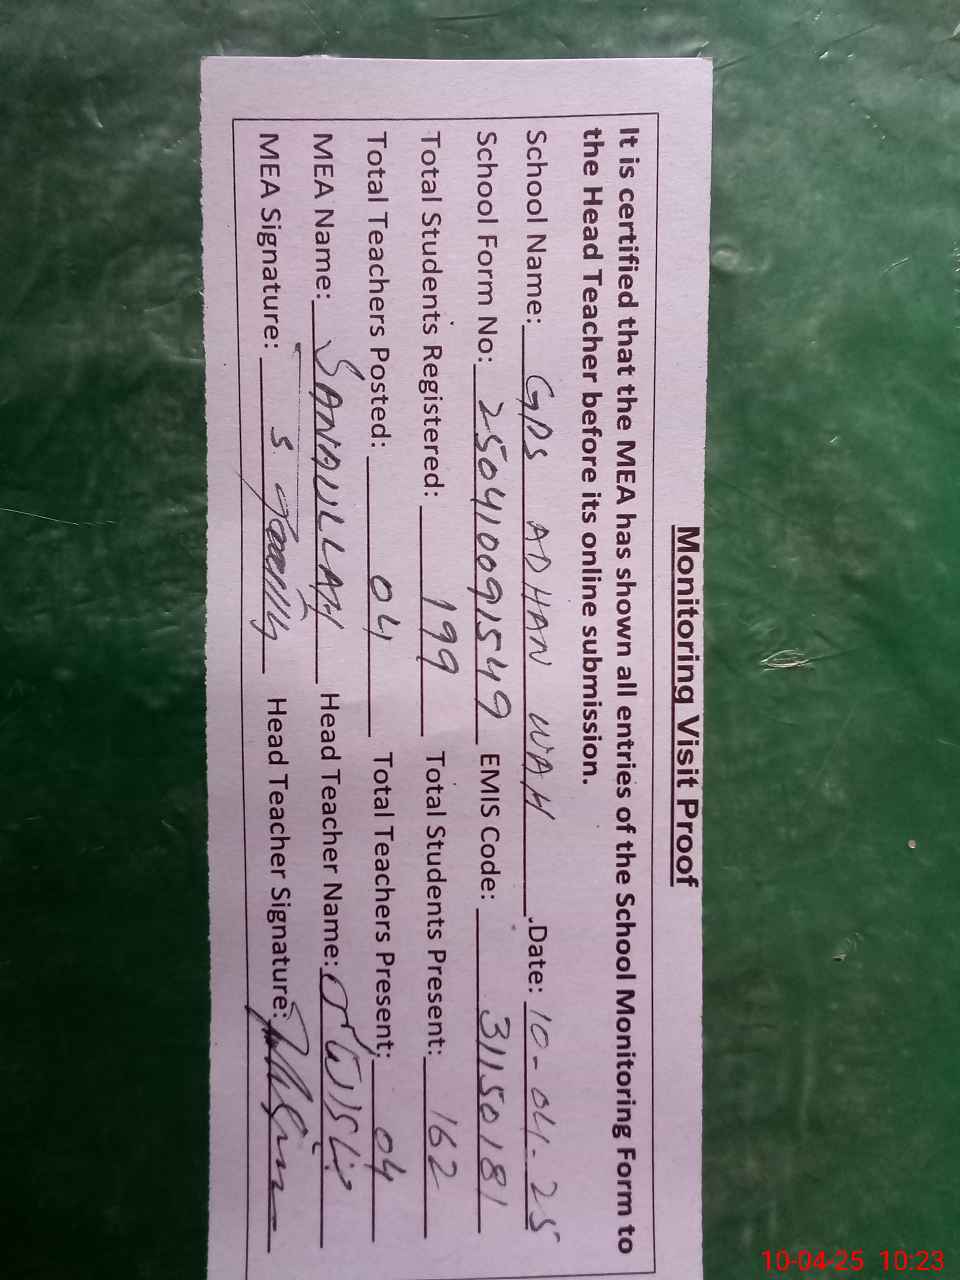 Monitoring Visit Proof
It is certified that the MEA has shown all entries of the School Monitoring Form to
the Head Teacher before its online submission.
School Name: GPS ADHAN WAH Date: 10-04-25
School Form No: 250410091549 EMIS Code: 31150181
Total Students Registered: 199 Total Students Present: 162
Total Teachers Posted: 04 Total Teachers Present: 04
MEA Name: SANAULLAH Head Teacher Name:
MEA Signature: Head Teacher Signature:
10-04-25 10:23